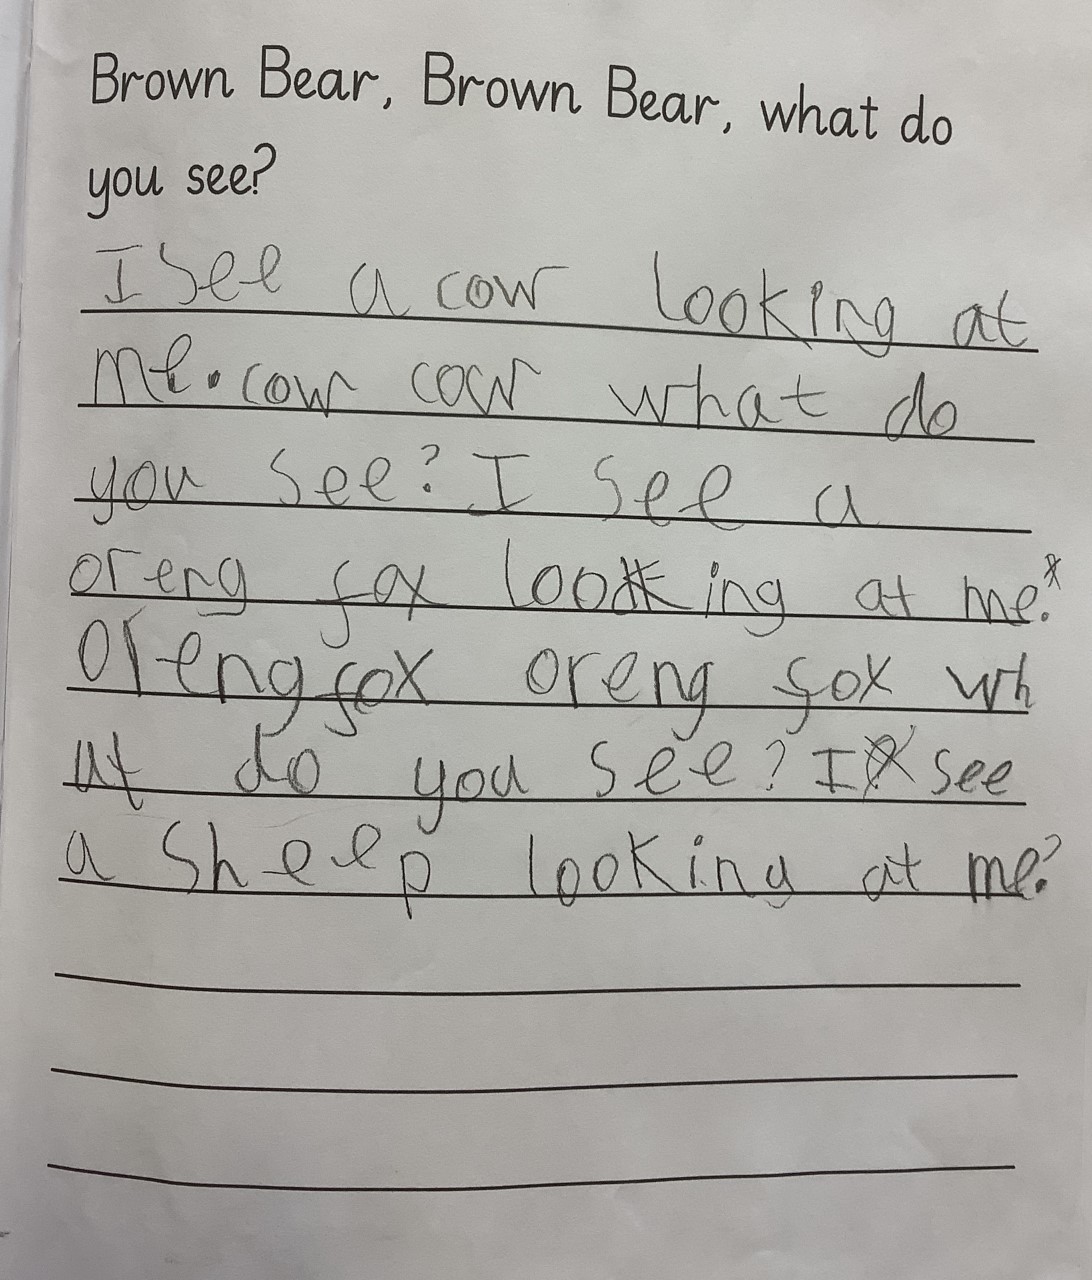 Brown Bear, Brown Bear, what do
you see?
I see a cow looking at
me. cow cow what do
you see? I see a
oreng fox looking at me.
oreng fox oreng fox wh
at do you see? I see
a sheep looking at me?